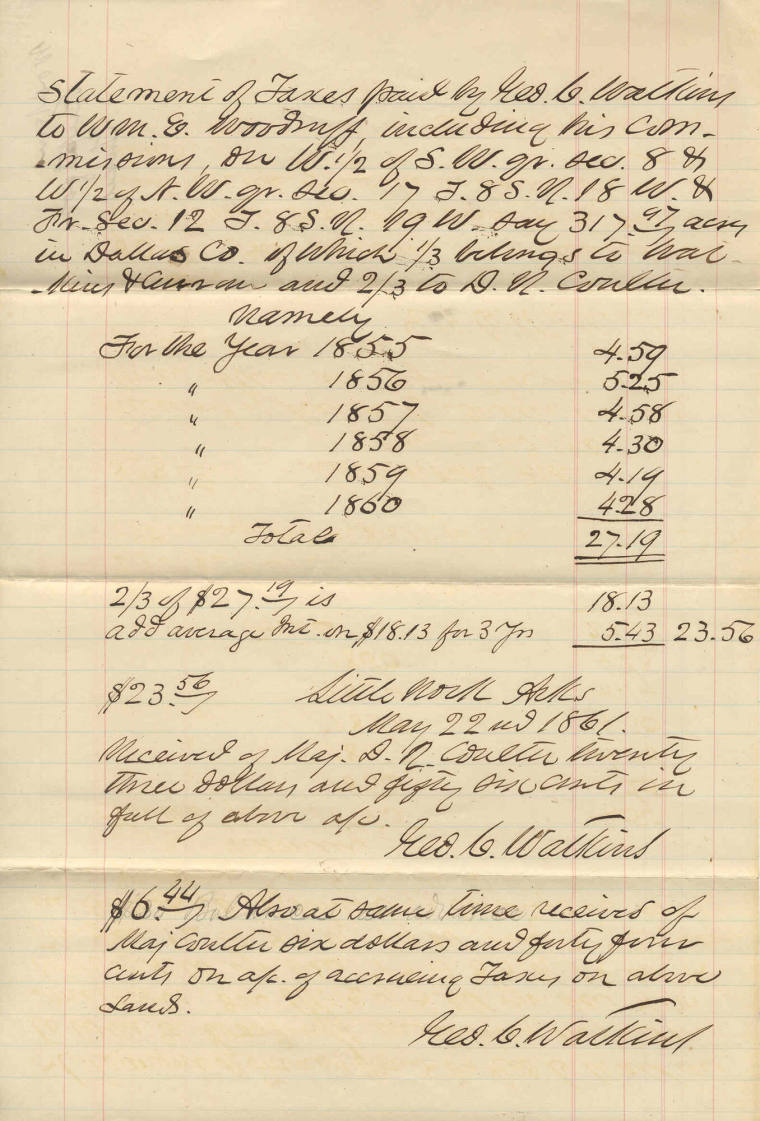 Statement of Taxes paid by Geo. C. Watkins
to Wm. E. Woodruff, including his Com-
-missions, on W. 1/2 of S. W. qr. sec. 8 &
W 1/2 of N. W. qr. sec. 17 T. 8 S. R. 18 W. &
Fr. Sec. 12 T. 8 S. R. 19 W. say 317.97 acres
in Dallas Co. of which 1/3 belongs to Wat-
-kins & Curran and 2/3 to D. R. Coulter.
Namely
For the Year 1855 4.59
" 1856 5.25
" 1857 4.58
" 1858 4.30
" 1859 4.19
" 1860 4.28
Total 27.19
2/3 of $27.19 is 18.13
add average Int. on $18.13 for 3 Yrs 5.43 23.56
$23.56 Little Rock Arks
May 22nd 1861.
Received of Maj. D. R. Coulter twenty
three dollars and fifty six cents in
full of above a/c.
Geo. C. Watkins
$6.44 Also at same time received of
Maj Coulter six dollars and forty four
cents on a/c. of accrueing Taxes on above
Lands.
Geo. C. Watkins